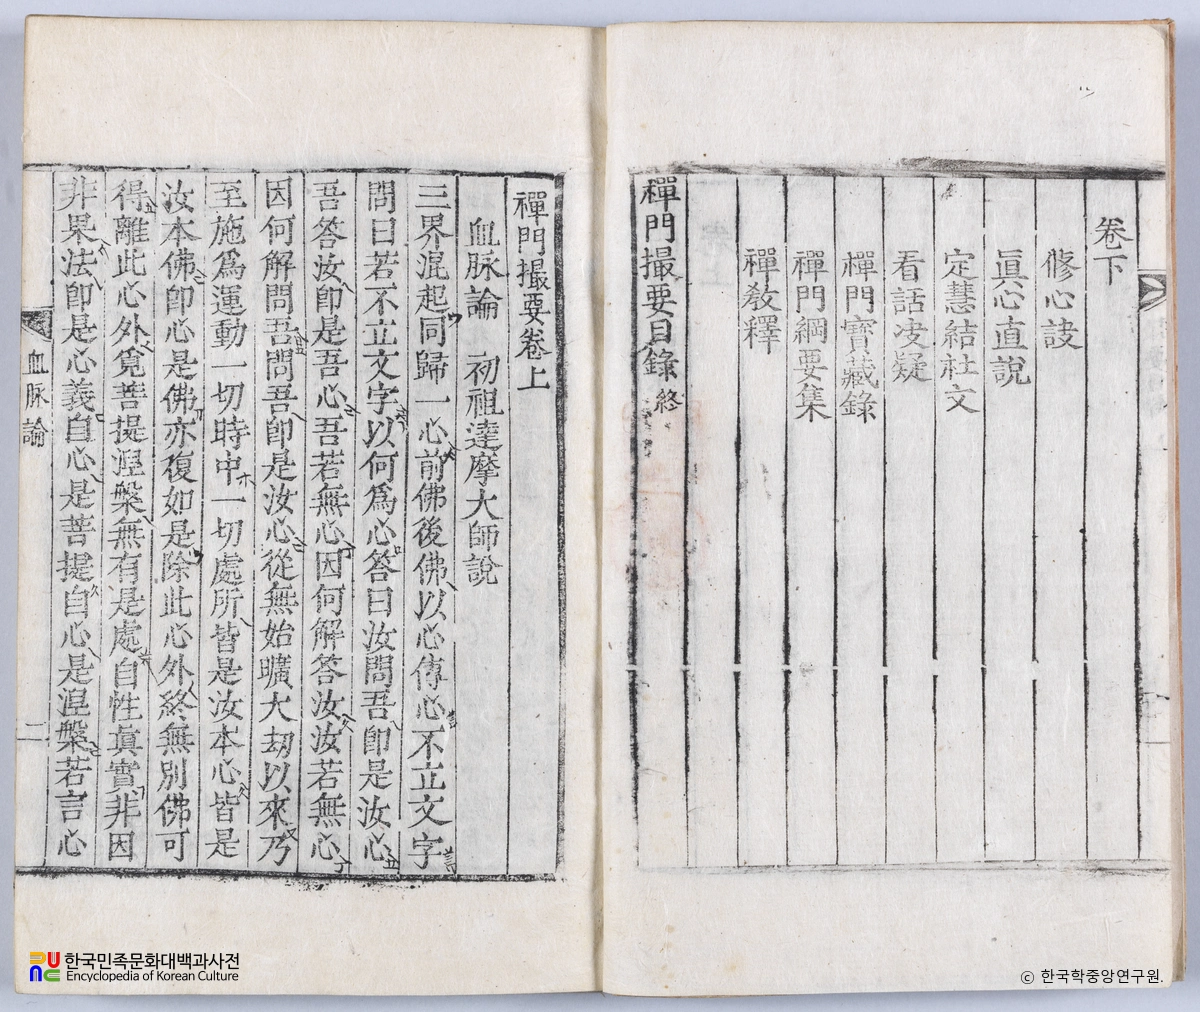 卷下
修心訣
眞心直說
定慧結社文
看話决疑
禪門寶藏錄
禪門綱要集
禪敎釋
禪門撮要目錄終
禪門撮要卷上
血脉論 初祖達摩大師說
三界混起同歸一心前佛後佛以心傳心不立文字
問曰若不立文字以何爲心答曰汝問吾卽是汝心
吾答汝卽是吾心吾若無心因何解答汝汝若無心
因何解問吾問吾卽是汝心從無始曠大劫以來乃
至施爲運動一切時中一切處所皆是汝本心皆是
汝本佛卽心是佛亦復如是除此心外終無別佛可
得離此心外覓菩提涅槃無有是處自性眞實非因
非果法卽是心義自心是菩提自心是涅槃若言心
血脉論
한국민족문화대백과사전
Encyclopedia of Korean Culture
ⓒ 한국학중앙연구원.